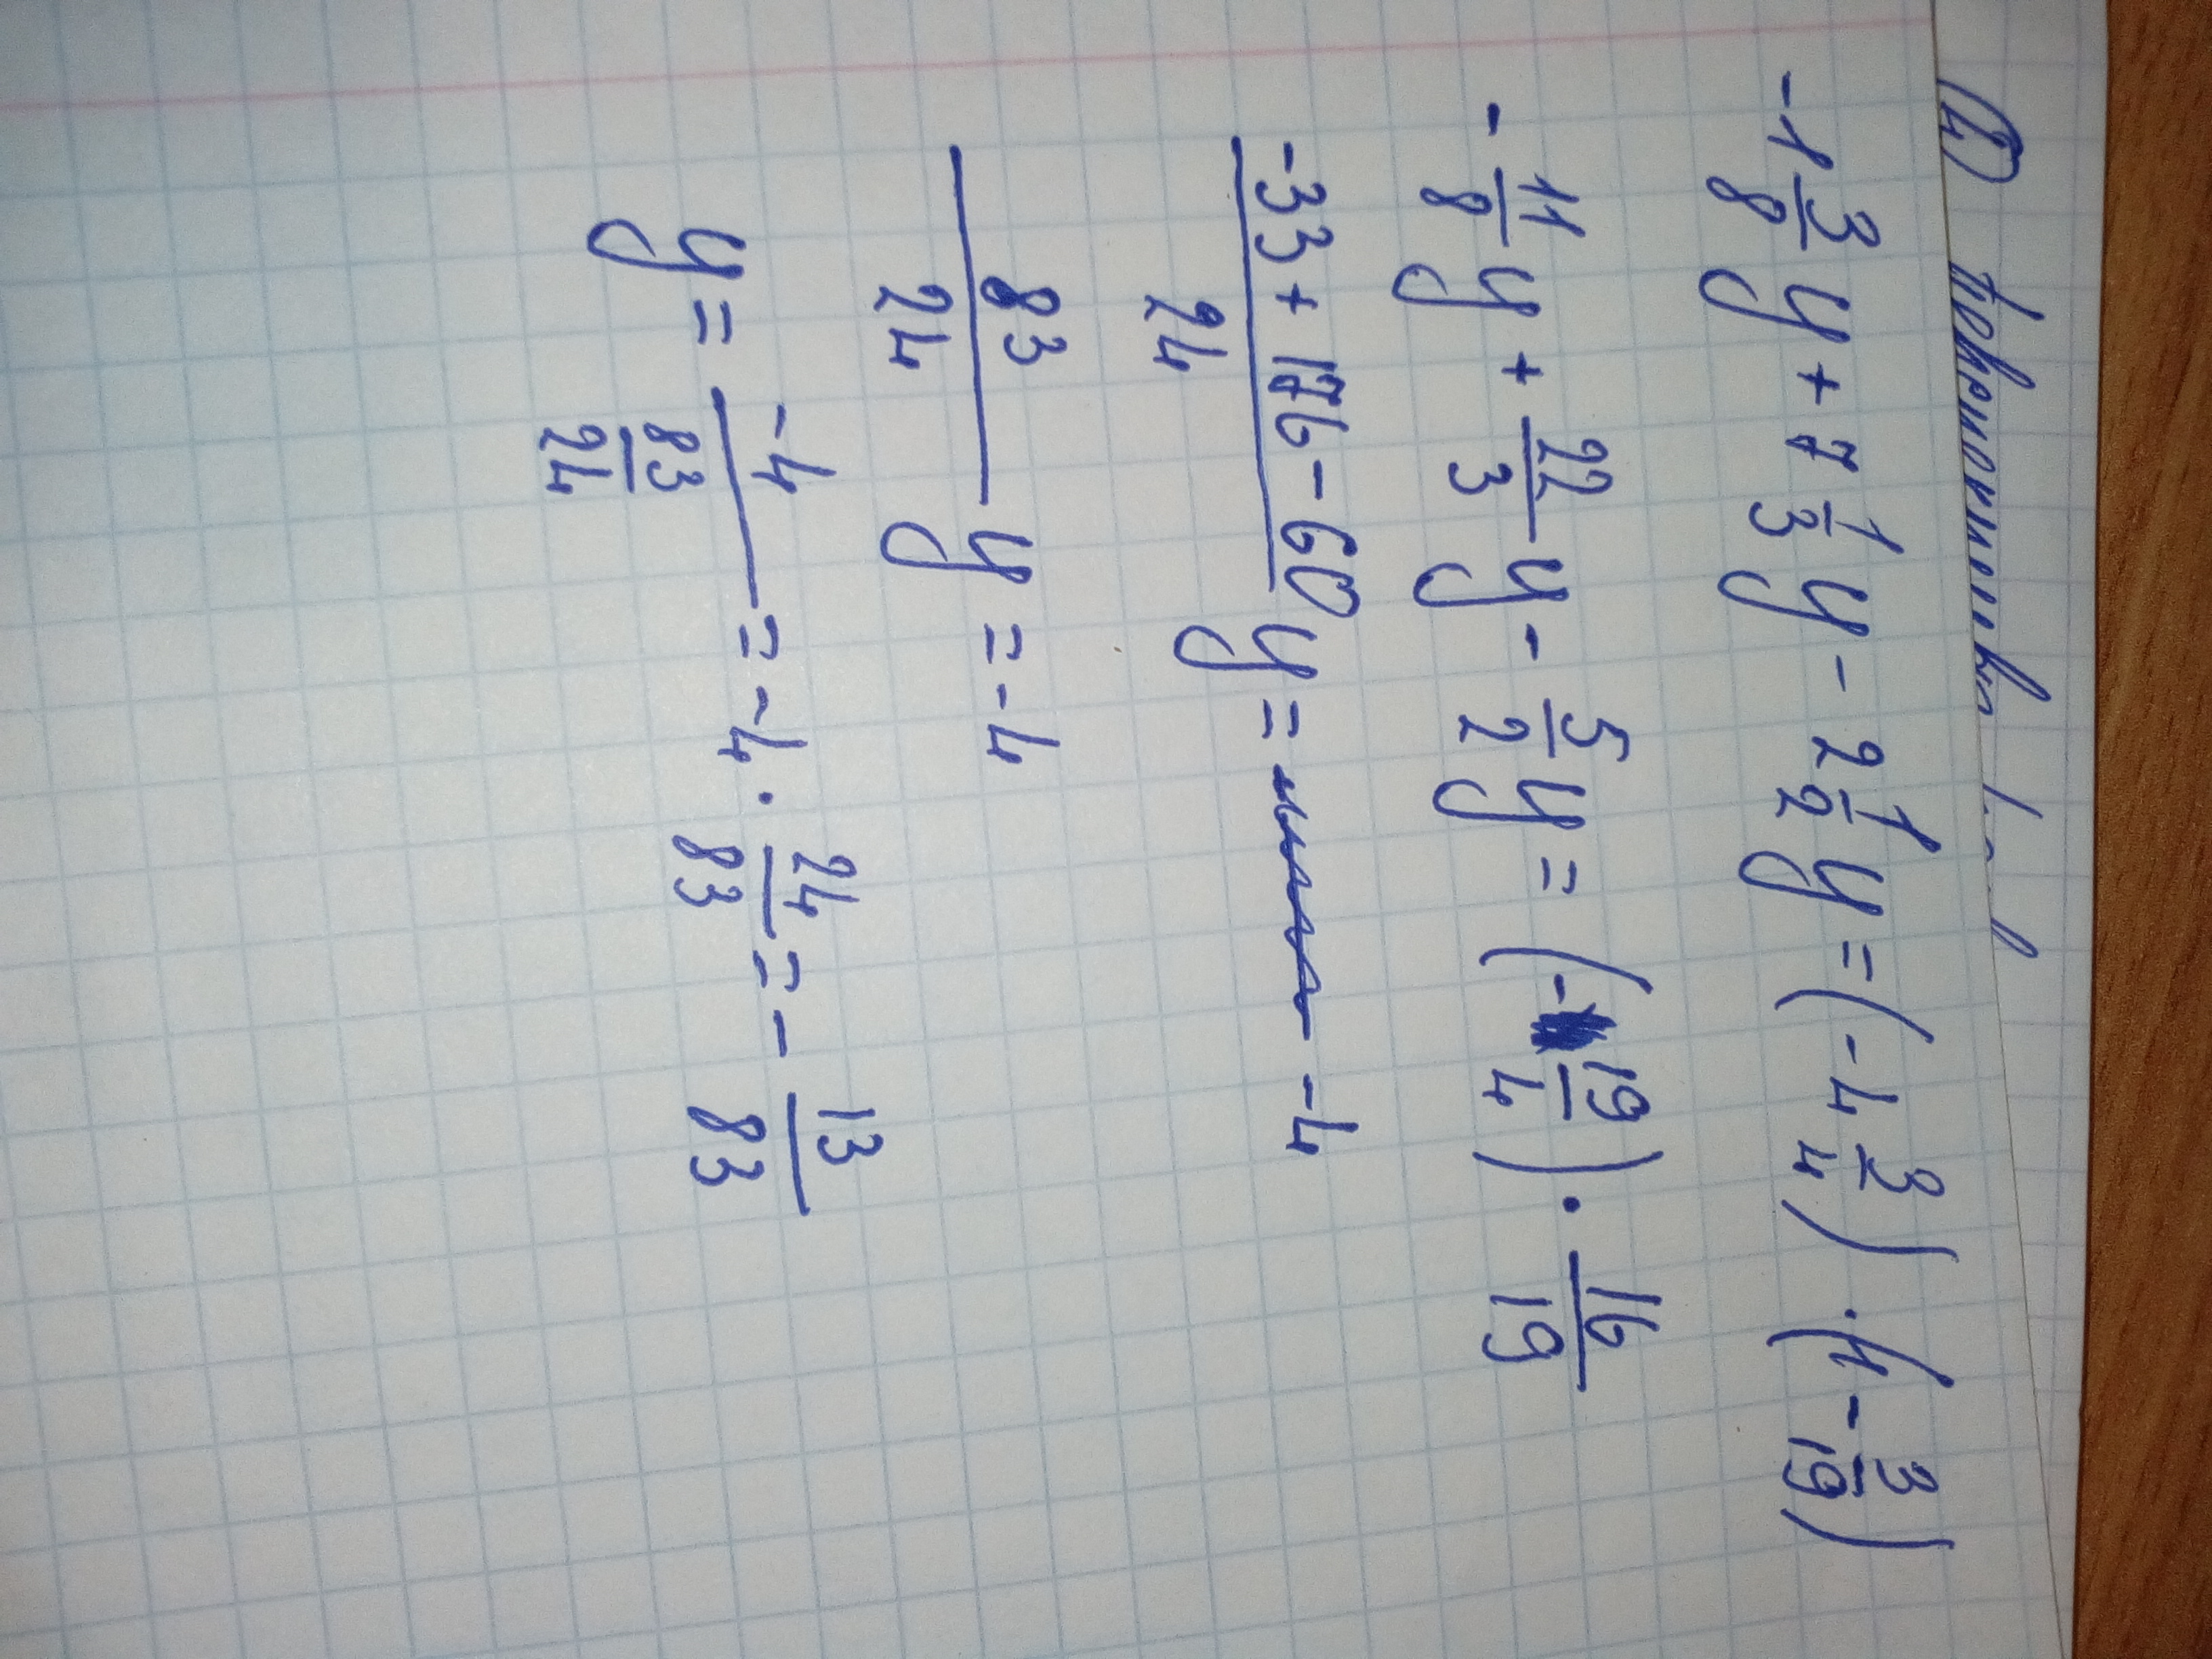 -1 3/8 y + 7 1/3 y - 2 1/2 y = (-4 3/4) · (4 - 3/19)
- 11/8 y + 22/3 y - 5/2 y = (- 19/4) · 16/19
(-33 + 176 - 60)/24 y = -4
83/24 y = -4
y = -4/(83/24) = -4 · 24/83 = - 13/83